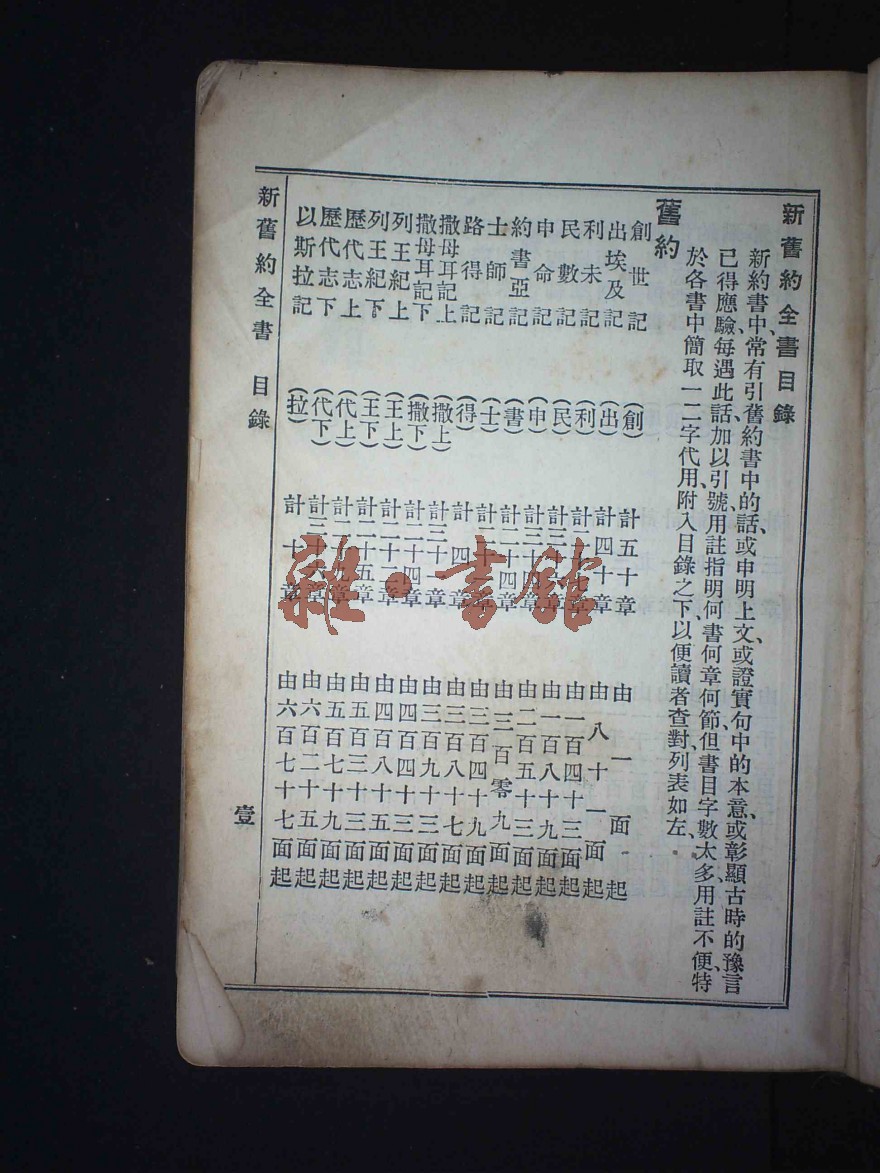 新舊約全書目錄
新約書中、常有引舊約書中的話、或申明上文、或證實句中的本意、或彰顯古時的豫言
已得應驗、每遇此話、加以引號、用註指明何書何章何節、但書目字數太多、用註不便、特
於各書中簡取一二字代用、附入目錄之下、以便讀者查對、列表如左、
舊約
創世記 (創) 計五十章 由一面起
出埃及記 (出) 計四十章 由八十一面起
利未記 (利) 計二十七章 由一百四十三面起
民數記 (民) 計三十六章 由一百八十九面起
申命記 (申) 計三十四章 由二百五十三面起
約書亞記 (書) 計二十四章 由三百零九面起
士師記 (士) 計二十一章 由三百四十九面起
路得記 (得) 計四章 由三百八十七面起
撒母耳記上 (撒上) 計三十一章 由三百九十三面起
撒母耳記下 (撒下) 計二十四章 由四百四十三面起
列王紀上 (王上) 計二十二章 由四百八十五面起
列王紀下 (王下) 計二十五章 由五百三十三面起
歷代志上 (代上) 計二十九章 由五百七十九面起
歷代志下 (代下) 計三十六章 由六百二十五面起
以斯拉記 (拉) 計十章 由六百七十七面起
新舊約全書 目錄 壹
雜·書館